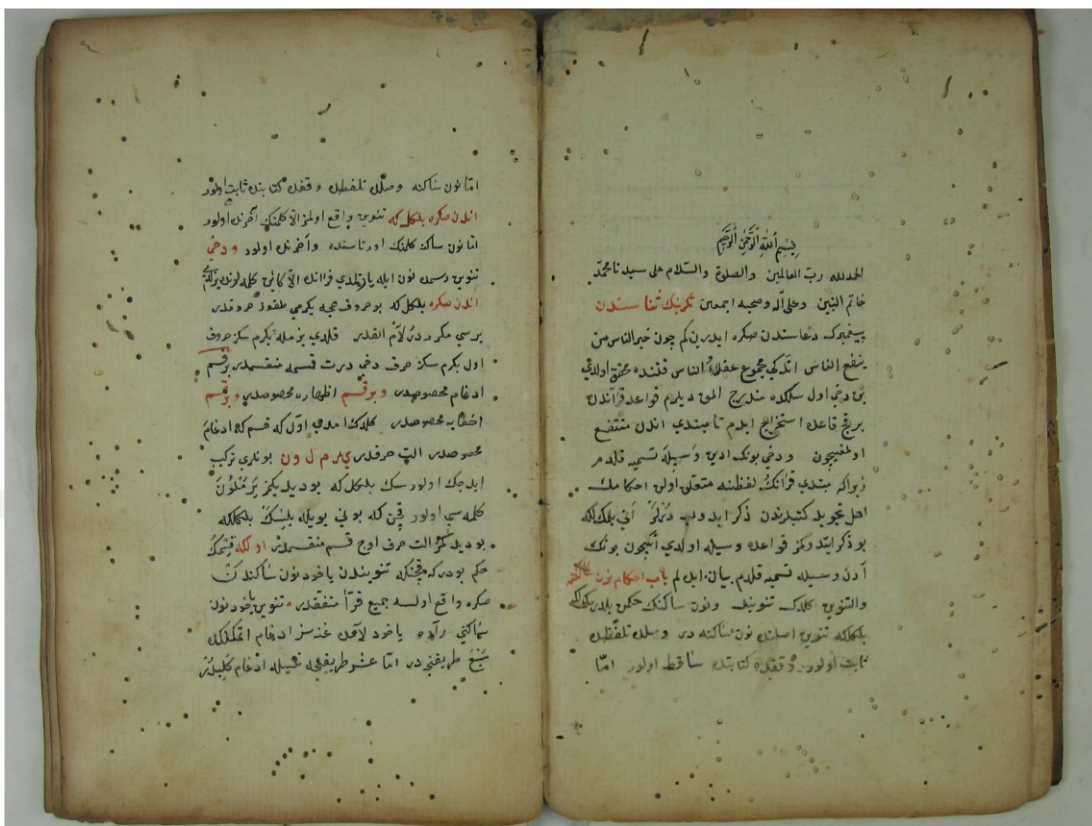 بسم الله الرحمن الرحيم
الحمد لله رب العالمين والصلوة والسلام على سيدنا محمد
خاتم النبين وعلى آله وصحبه اجمعين تكرينك ثنا سندن
پيغمبرك دعاسندن صكره ايدرين كم چون خير الناس من
ينفع الناس اندكى مجموع عقلاء الناس قتنده محقق اولدى
بن دخى اول سلكده مندرج المق ديلرم قواعد قرآندن
بر قچ قاعده استخراج ايلدم تا مبتدى اندن منتفع
اولمغيچون ودخى بونك ادين وسيله تسميه قلدم
زيرا كه مبتدى قرآنك لفظنه متعلق اولن احكامك
اهل تجويد كتبلرندن ذكر ايدوب درلر انى بلمك
بو ذكر ايتدوكمز قواعده وسيله اولدى انيچون بونك
آدن وسيله تسميه قلدم بيان ايدلم باب احكام نون ساكنه
والتنوين كلدك تنوينك ونون ساكنك حكمن بلدرمكه
بلكلكه تنوين اصلنده نون ساكنه در وصلده تلفظده
ثابت اولور وقفده كتابتده ساقط اولور امّا
امّا نون ساكنه وصلده تلفظده وقفده كتابتده ثابت اولور
اندن صكره بلكل كه تنوين واقع اولمز الا كلمنك آخرنده اولور
امّا نون ساكن كلمنك اورتاسنده وآخرنده اولور ودخى
تنوين رسمى نون ايله يازلمدى قرآنده الا كاين كلمه لرنده
اندن صكره بلكل كه بو حروف هجه يكرمى طقوز حروفدر
برسى مكرردر لام الفدر قلدى بزمله يكرم سكز حروف
اول يكرم سكز حرف دخى درت قسمه منقسمدر بر قسم
ادغام مخصوصدر وبر قسم اظهاره مخصوصدر وبر قسم
اخفايه مخصوصدر كلدك امدى اول كه قسم كه ادغام
مخصوصدر التى حرفدر ى ر م ل و ن بونلرى تركيب
ايدجك اولورسك بلكل كه بو ديديكمز يرملون
كلمه سى اولور قچن كه بونى بويله بلسك بلكلكه
بو ديديكمز التى حرف اوچ قسم منقسمدر اولكه قسمك
حكم بودر كه قچنكه تنويندن ياخود نون ساكندن
صكره واقع اولسه جميع قرآ متفقدر تنوين ياخود نون
ساكنى راده ياخود لامده غنه سز ادغام اتمكلك
سبع طريقنجه در امّا عشر طريقنجه غنيله ادغام